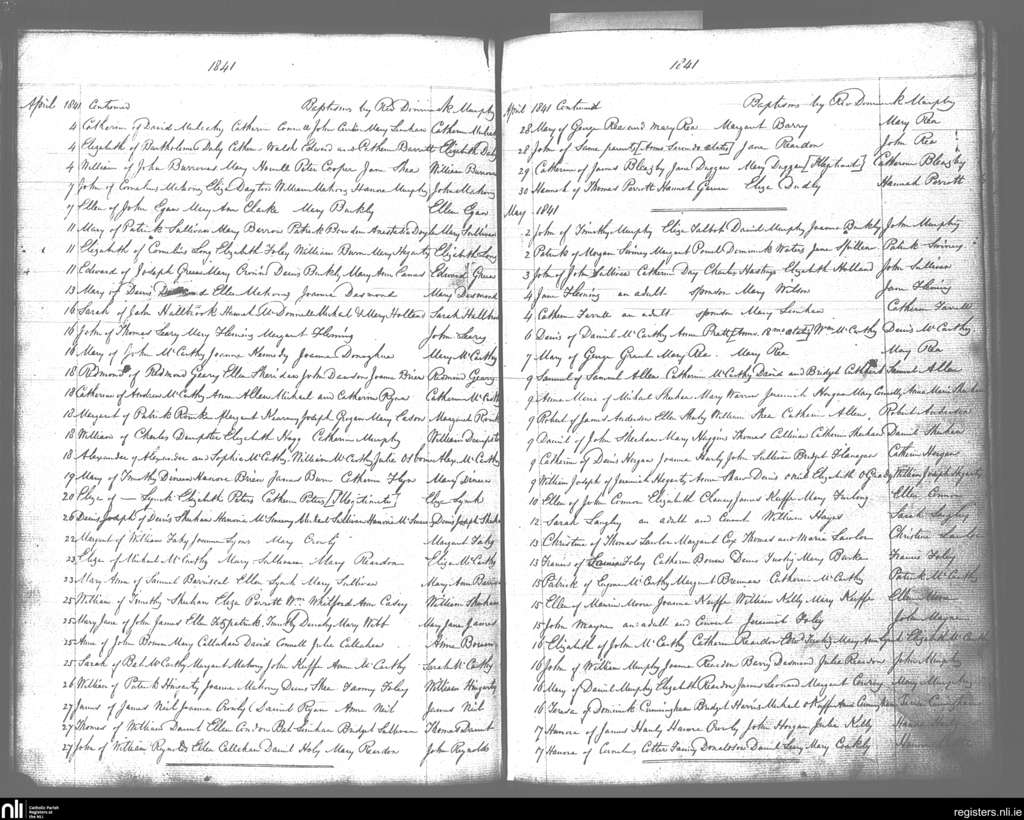 1841
April 1841 Continued Baptisms by Revd Dominick Murphy
4 Catherine of David Catherine Connell John Mary Linehan Catherine
4 Elizabeth of Bartholomew Daly Cathern Walsh Edward and Cathern Barrett Elizabeth Daly
4 William of John Burrows Mary Howell Peter Cooper Jane Shea William Burrows
7 John of Cornelius Mahony Eliza Dayton William Mahony Hanna Murphy John Mahony
7 Ellen of John Egan Mary Ann Clarke Mary Buckly Ellen Egan
11 Mary of Patrick Sullivan Mary Barron Patrick Bowden Anastatia Doyle Mary Sullivan
11 Elizabeth of Cornelius Long Elizabeth Foley William Mary Hegarty Elizabeth Long
11 Edward of Joseph Green Mary Denis Buckly Mary Ann Edward Green
13 Mary of Denis Ellen Mahony Joanna Desmond Mary Desmond
16 Sarah of John Hallbrook Hannah McDonnell Michael & Mary Holland Sarah
16 John of Thomas Leary Mary Fleming Margaret Fleming John Leary
18 Mary of John McCarthy Joanna Kennedy Joanna Donaghue Mary McCarthy
18 Redmond of Redmond Geary Ellen Sheridan John Dawson Joanna Brien Redmond Geary
18 Catherine of Andrew McCarthy Anne Allen Michael and Catherine Ryan Catherine McCarthy
18 Margaret of Patrick Rourke Margaret Joseph Grogan Mary Margaret
18 William of Charles Dempster Elizabeth Catherin Murphy William Dempster
18 Alexander of Alexander and Sophia McCarthy William McCarthy Julia Osborne Alexr McCarthy
19 Mary of Timothy Hanora Brien James Burn Catherine Flyn Mary
20 Eliza of — Lynch Elizabeth Peters Catherin Peters [Illegitimate] Eliza Lynch
26 Denis Joseph of Denis Sheehan Hanoria McSweeny Michael Sullivan Hanoria McSweeny Denis Joseph
22 Margaret of William Foley Joanna Lyons Mary Crowly Margaret Foley
23 Eliza of Michael McCarthy Mary Sullivan Mary Reardon Eliza McCarthy
23 Mary Anne of Samuel Ellen Lynch Mary Sullivan Mary Ann
25 William of Timothy Sheehan Eliza Perrott Wm Whitford Ann Casey William Sheehan
25 Mary Jane of John James Ellen Fitzpatrick Mary Webb Mary Jane James
25 Anne of John Bowen Mary Callahan David Connell Julia Callahan Anne Bowen
25 Sarah of Bat McCarthy Margaret Mahony John Keeffe Ann McCarthy Sarah McCarthy
26 William of Patrick Hegarty Joanna Mahony Denis Shea Fanny Foley William Hegarty
27 James of James Neil Joanna Crowly Daniel Ryan Anne Neil James Neil
27 Thomas of William Daunt Ellen Condon Bat Linehan Bridget Sullivan Thomas Daunt
27 John of William Reynolds Ellen Callahan Daniel Mary Reardon John Reynolds
1841
April 1841 Continued Baptisms by Revd Dominick Murphy
28 Mary of George Rea and Mary Rea Margaret Barry Mary Rea
28 John of Same parents [Anno Secundo Aetatis] Jane Reardon John Rea
29 Catherin of James Jane Duggan Mary Duggan [Illegitimate] Catherin
30 Hannah of Thomas Perrott Hannah Eliza Hannah Perrott
May 1841
2 John of Timothy Murphy Eliza Talbot David Murphy Joanna Buckly John Murphy
2 Patrick of Morgan Swiney Margaret Powell Dominick Waters Jane Spillan Patrick Swiney
3 John of John Sullivan Catherin Day Charles Hastings Elizabeth Holland John Sullivan
4 Jane Fleming an adult sponsor Mary Wilson Jane Fleming
4 Cathern Farrell an adult sponsor Mary Linehan Cathern Farrell
6 Denis of Daniel McCarthy Anne Pratt Wm McCarthy Denis McCarthy
7 Mary of George Grant Mary Rea Mary Rea Mary Rea
9 Samuel of Samuel Allen Catherin McCarthy David and Bridget Samuel Allen
9 Anna Maria of Michael Sheehan Mary Warren Jeremiah Horgan Mary Connolly Anna Maria Sheehan
9 Robert of James Anderson Ellen William Shea Catherin Allen Robert Anderson
9 Daniel of John Sheehan Mary Higgins Thomas Callinan Catherin Sheehan Daniel Sheehan
9 Catherin of Denis Horgan Joanna Hanly John Sullivan Bridget Flanagan Catherin Horgan
9 William Joseph of Jeremiah Hegarty Anne Shaw Denis O'Neil Elizabeth O'Grady William Joseph Hegarty
10 Ellen of John Connor Elizabeth Clancy James Keeffe Mary Furlong Ellen Connor
12 Sarah Langley an adult and Convert William Hayes Sarah Langley
13 Christina of Thomas Lawlor Margaret Cox Thomas and Maria Lawlor Christina Lawlor
13 Francis of Foley Cathern Bowen Denis Mary Burke Francis Foley
15 Patrick of Eugene McCarthy Margaret Brennan Catherin McCarthy Patrick McCarthy
15 Ellen of Maurice Moore Joanna Keeffe William Kelly Mary Keeffe Ellen Moore
15 John Mayne an adult and Convert Jeremiah Foley John Mayne
16 Elizabeth of John McCarthy Cathern Reardon Mary Anne Elizabeth McCarthy
16 John of William Murphy Joanna Reardon Barry Desmond Julia Reardon John Murphy
16 Mary of Daniel Murphy Elizabeth Reardon James Leonard Margaret Mary Murphy
16 Teresa of Dominick Cunningham Bridget Harris Michael O'Keeffe Anne Cunningham Teresa Cunningham
17 Honora of James Hanly Honora Crowly John Horgan Julia Kelly
17 Honora of Cornelius Cotter Fanny Donaldson Daniel Leary Mary Coakly
nli Catholic Parish Registers at the NLI
registers.nli.ie